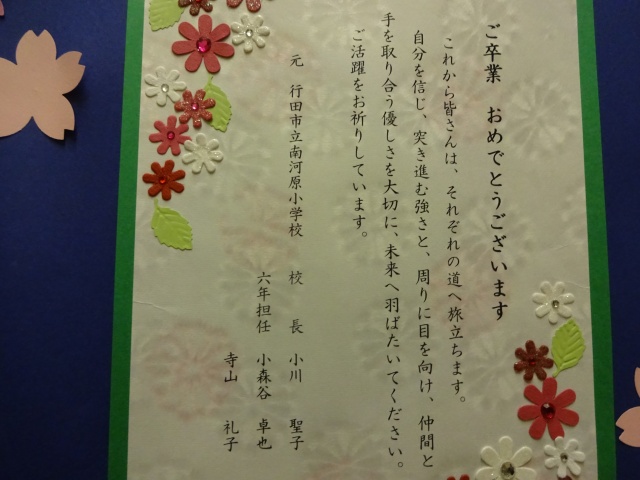 ご卒業　おめでとうございます
これから皆さんは、それぞれの道へ旅立ちます。
自分を信じ、突き進む強さと、周りに目を向け、仲間と
手を取り合う優しさを大切に、未来へ羽ばたいてください。
ご活躍をお祈りしています。
元　行田市立南河原小学校　校　長　小川　聖子
六年担任　小森谷　卓也
寺山　礼子